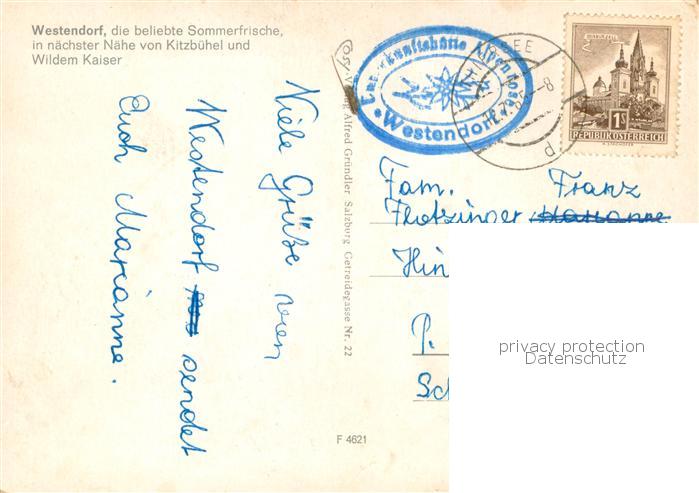 Westendorf, die beliebte Sommerfrische,
in nächster Nähe von Kitzbühel und
Wildem Kaiser
Viele Grüße von
Westendorf sendet
Euch Marianne.
Cosy-Verlag Alfred Gründler Salzburg Getreidegasse Nr. 22
F 4621
Unterkunftshütte Alpenrose
Westendorf
SEE
8
d
MARIAZELL
1S
REPUBLIK ÖSTERREICH
Fam. Franz
Flotzinger Marianne
Hin
P.
Sc
privacy protection
Datenschutz